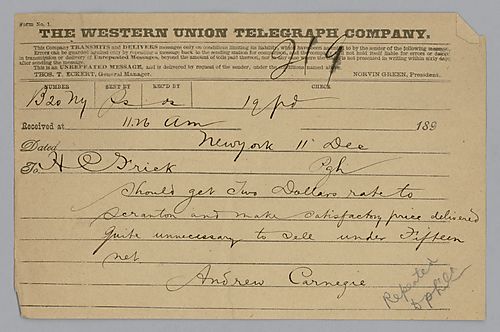 Form No. 1.
THE WESTERN UNION TELEGRAPH COMPANY.
This Company TRANSMITS and DELIVERS messages only on conditions limiting its liability, which have been assented to by the sender of the following message.
Errors can be guarded against only by repeating a message back to the sending station for comparison, and the company will not hold itself liable for errors or delays
in transmission or delivery of Unrepeated Messages, beyond the amount of tolls paid thereon, nor in any case where the claim is not presented in writing within sixty days
after sending the message.
This is an UNREPEATED MESSAGE, and is delivered by request of the sender, under the conditions named above.
THOS. T. ECKERT, General Manager. NORVIN GREEN, President.
219
NUMBER SENT BY REC'D BY CHECK
B20 Ny 19 pd
Received at 11.26 am 189
Dated New york 11 Dec
To H C Frick Pgh
Should get Two Dollars rate to
Scranton and make satisfactory price delivered
Quite unnecessary to sell under Fifteen
net
Andrew Carnegie
Repeated
to Phila